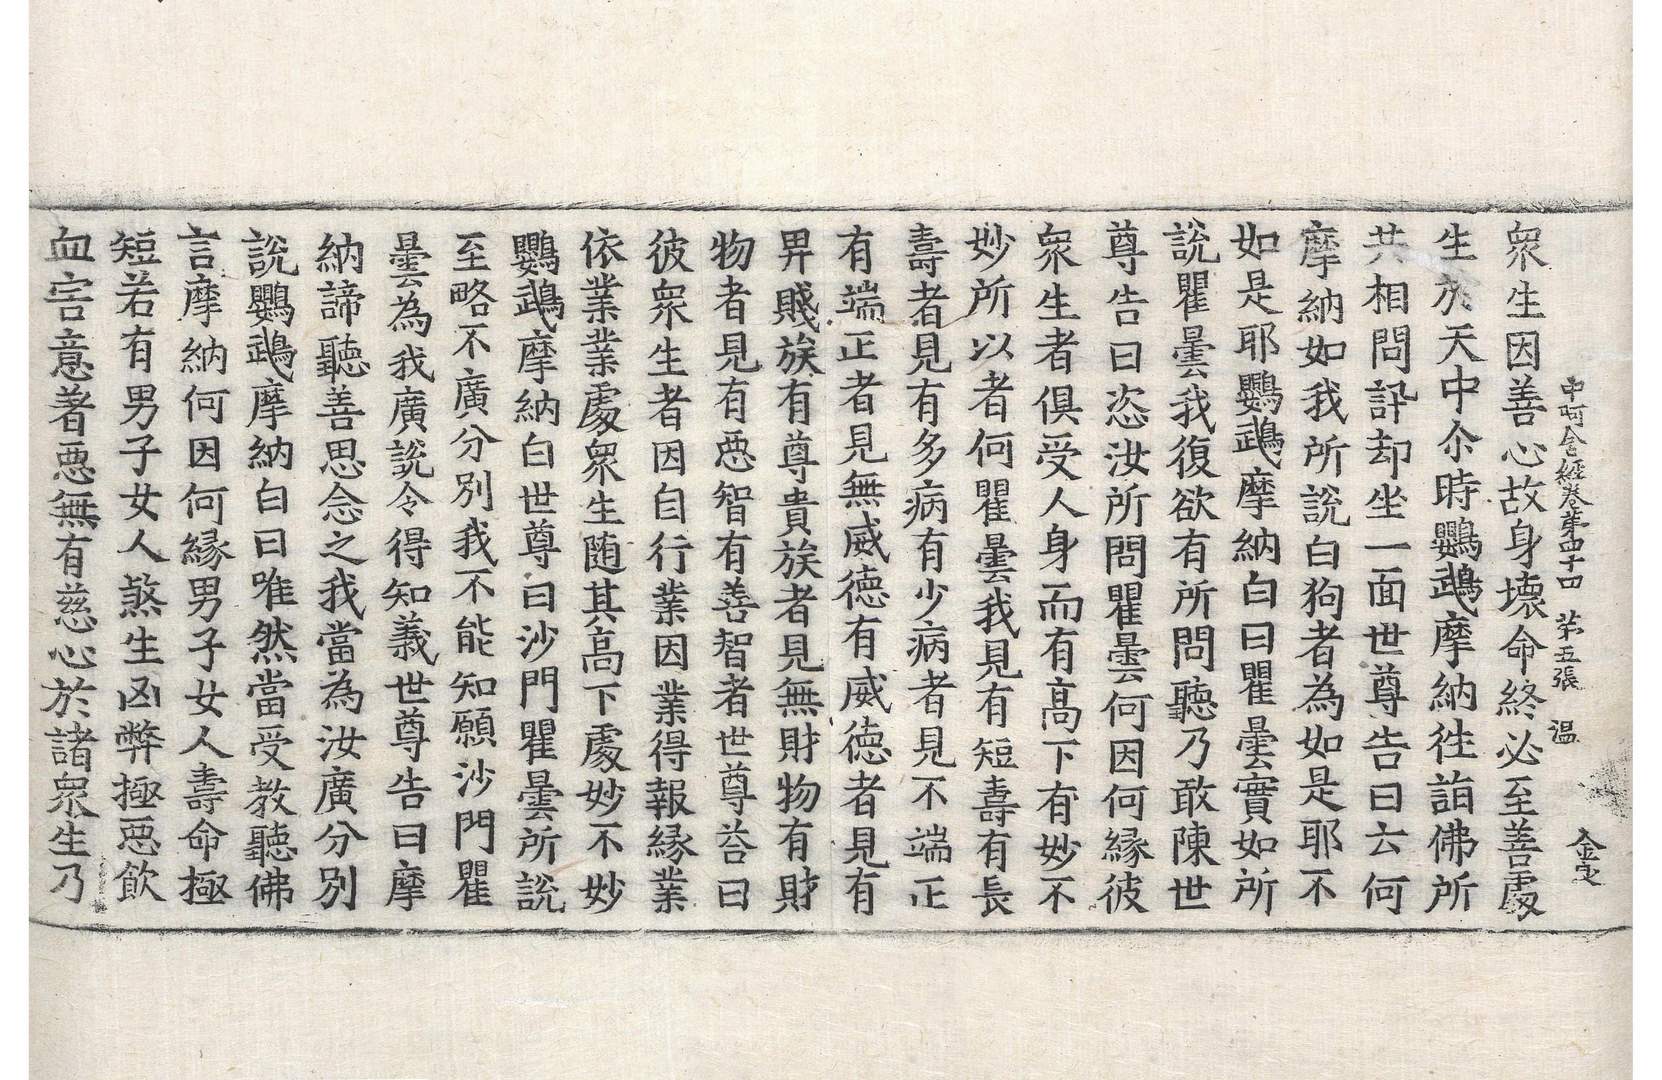 中阿含經卷第四十四　第五張　温
金定
衆生因善心故身壞命終必至善處
生於天中尒時鸚鵡摩納往詣佛所
共相問訊却坐一面世尊告曰云何
摩納如我所說白狗者為如是耶不
如是耶鸚鵡摩納白曰瞿曇實如所
說瞿曇我復欲有所問聽乃敢陳世
尊告曰恣汝所問瞿曇何因何緣彼
衆生者俱受人身而有高下有妙不
妙所以者何瞿曇我見有短壽有長
壽者見有多病有少病者見不端正
有端正者見無威德有威德者見有
畀賤族有尊貴族者見無財物有財
物者見有惡智有善智者世尊荅曰
彼衆生者因自行業因業得報緣業
依業業處衆生随其高下處妙不妙
鸚鵡摩納白世尊曰沙門瞿曇所說
至略不廣分別我不能知願沙門瞿
曇為我廣說令得知義世尊告曰摩
納諦聽善思念之我當為汝廣分別
說鸚鵡摩納白曰唯然當受教聽佛
言摩納何因何緣男子女人壽命極
短若有男子女人煞生凶弊極惡飲
血害意著惡無有慈心於諸衆生乃